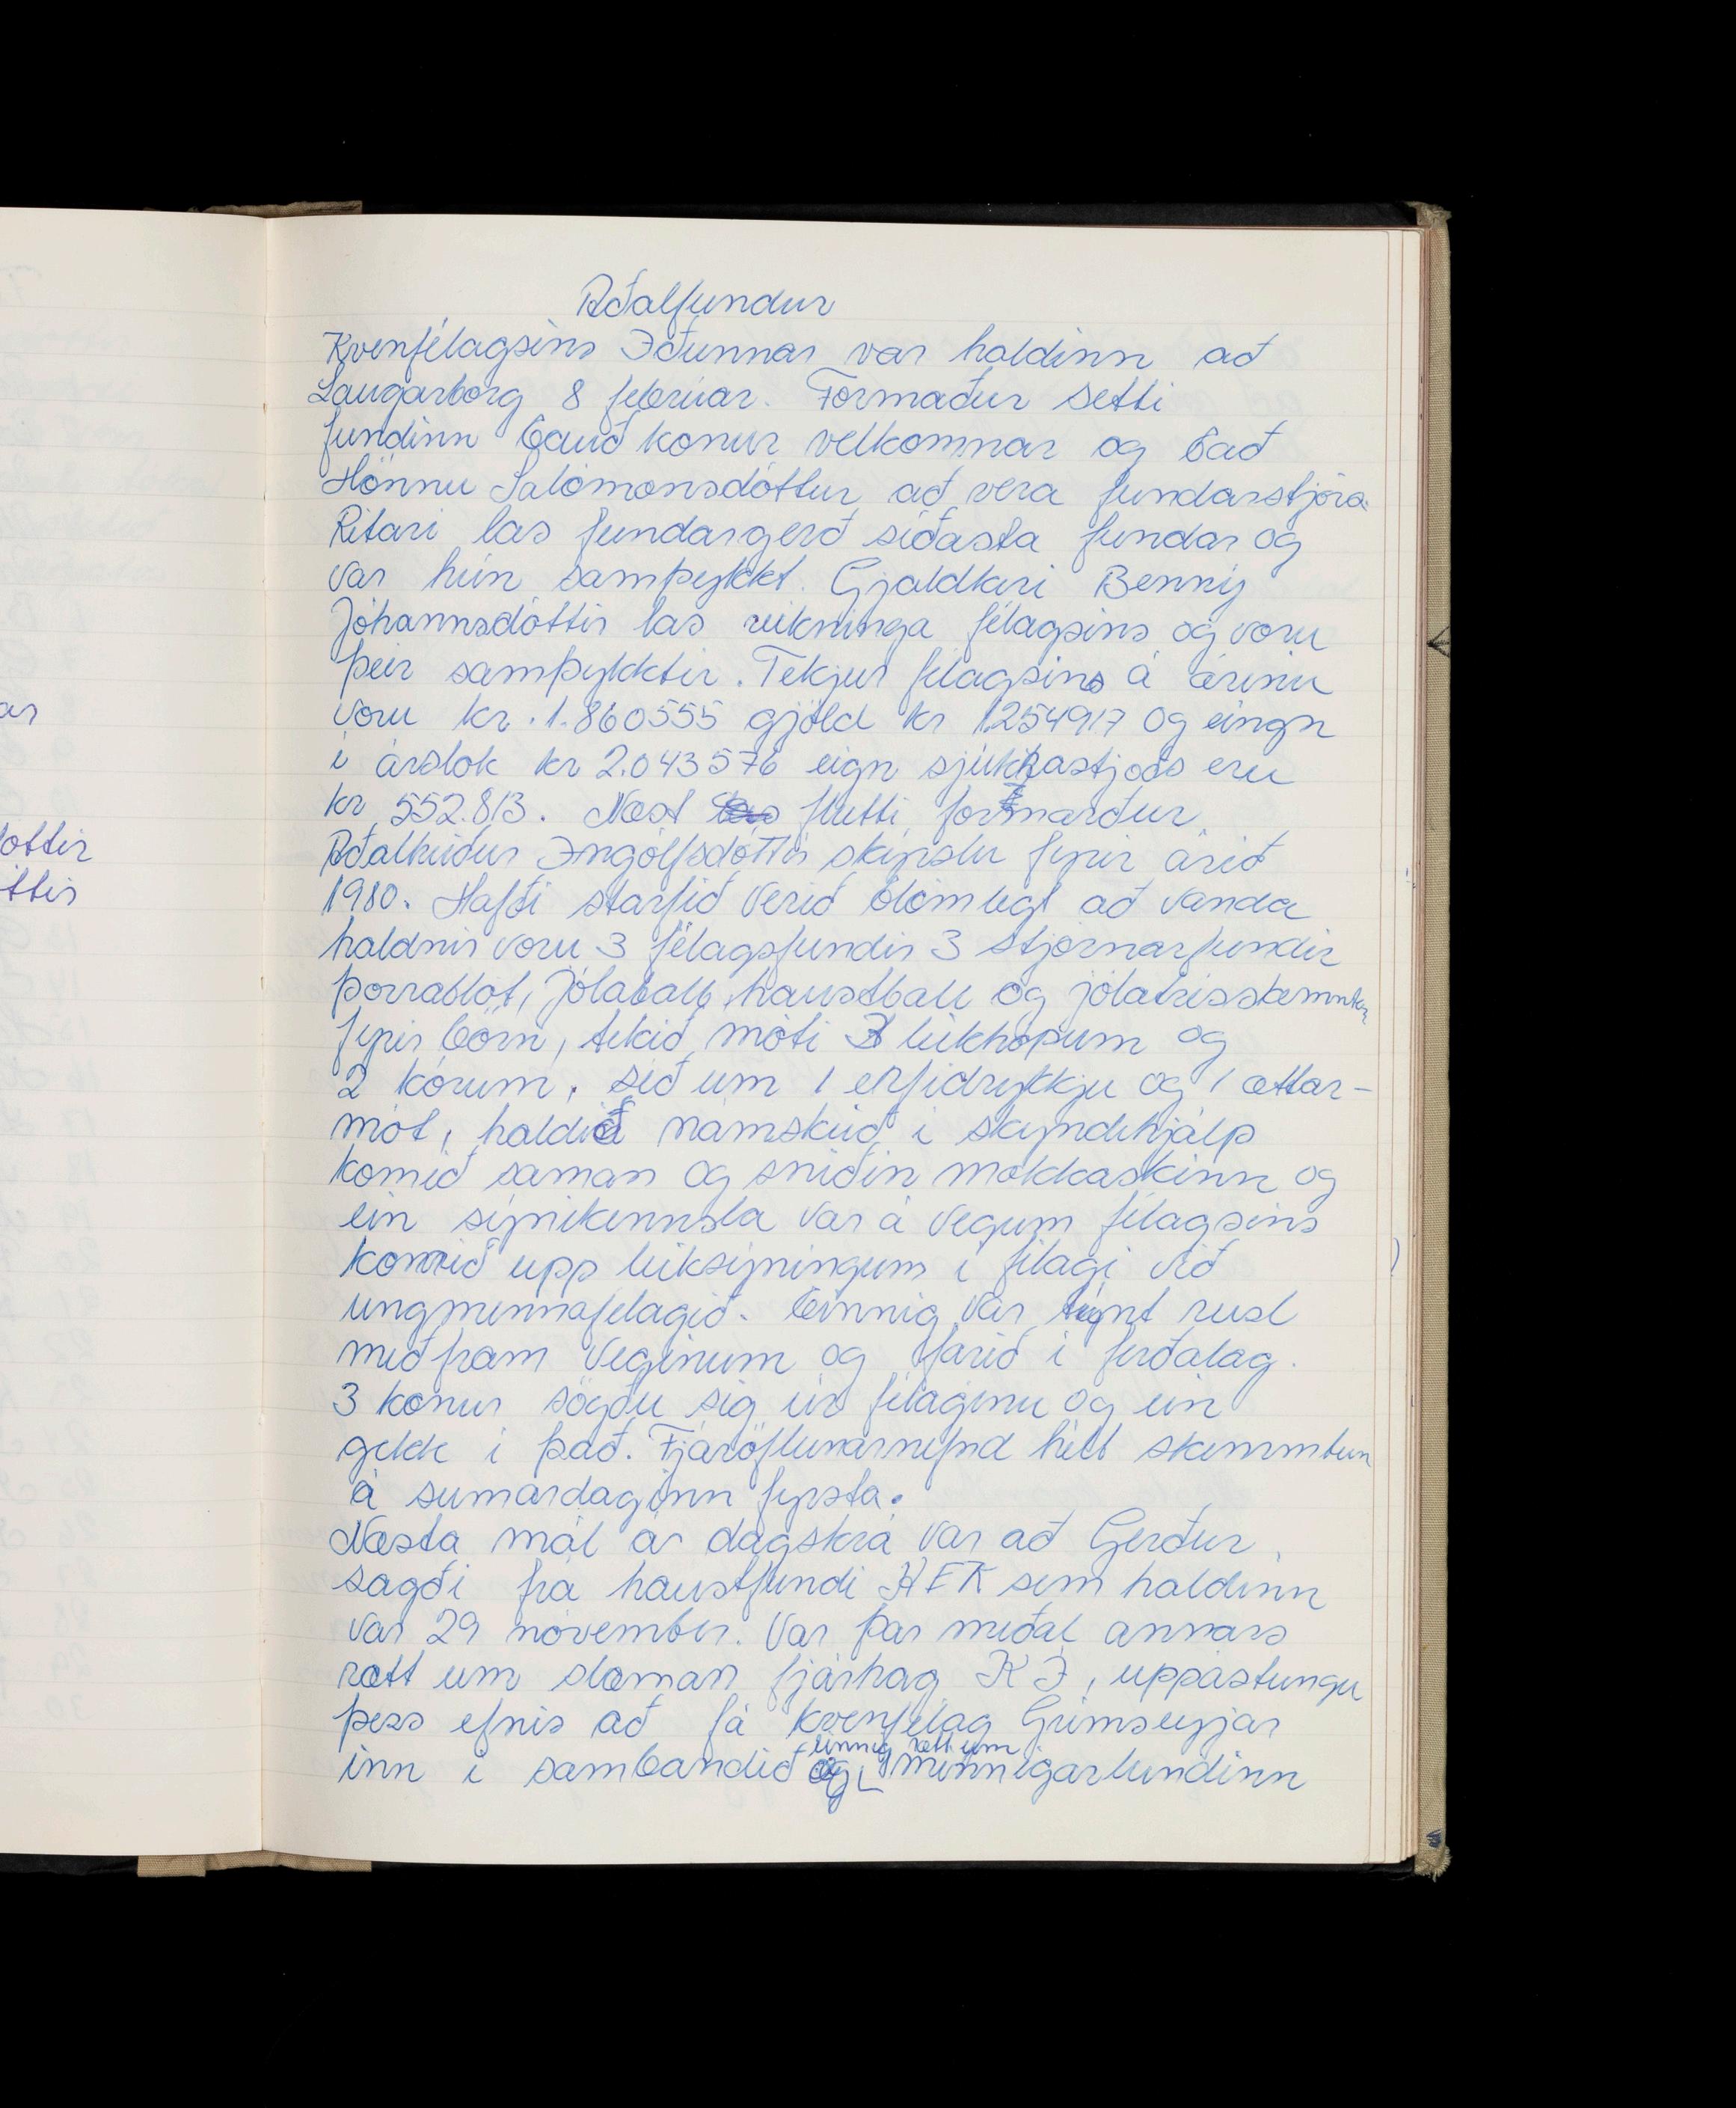 Aðalfundur
Kvenfélagsins Iðunnar var haldinn að
Laugarborg 8 febrúar. Formaður setti
fundinn bauð konur velkomnar og bað
Hönnu Salómonsdóttur að vera fundarstjóra.
Ritari las fundargerð síðasta fundar og
var hún samþykkt. Gjaldkeri Benný
Jóhannsdóttir las reikninga félagsins og voru
þeir samþykktir. Tekjur félagsins á árinu
voru kr. 1.860555 gjöld kr 1254917 og eingn
í árslok kr 2.043576 eign sjúkrastjóðs eru
kr 552.813. Næst las flutti formarður
Aðalheiður Ingólfsdóttir skýrslu fyrir árið
1980. Hafði starfið verið blómlegt að vanda
haldnir voru 3 félagsfundir 3 stjórnarfundir
þorrablót, Jólaball haustball og jólatrésskemmtun
fyrir börn, tekið móti 3 leikhópum og
2 kórum, séð um 1 erfidrykkju og 1 ættar-
mót, haldið námskeið í skyndihjálp
komið saman og sniðin mokkaskinn og
ein sýnikennsla var á vegum félagsins
komið upp leiksýningum í félagi við
ungmennafélagið. Einnig var týnt rusl
meðfram veginum og farið í ferðalag.
3 konur sögðu sig úr félaginu og ein
gekk í það. Fjáröflunarnefnd hélt skemmtun
á sumardaginn fyrsta.
Næsta mál á dagskrá var að Gerður
sagði frá haustfundi HEK sem haldinn
var 29 nóvember. Var þar meðal annars
rætt um slæman fjárhag KÍ, uppástungu
þess efnis að fá kvenfélag Grímseyjar
einnig rætt um
inn í sambandið og minnigarlundinn
ar
dóttir
ttir